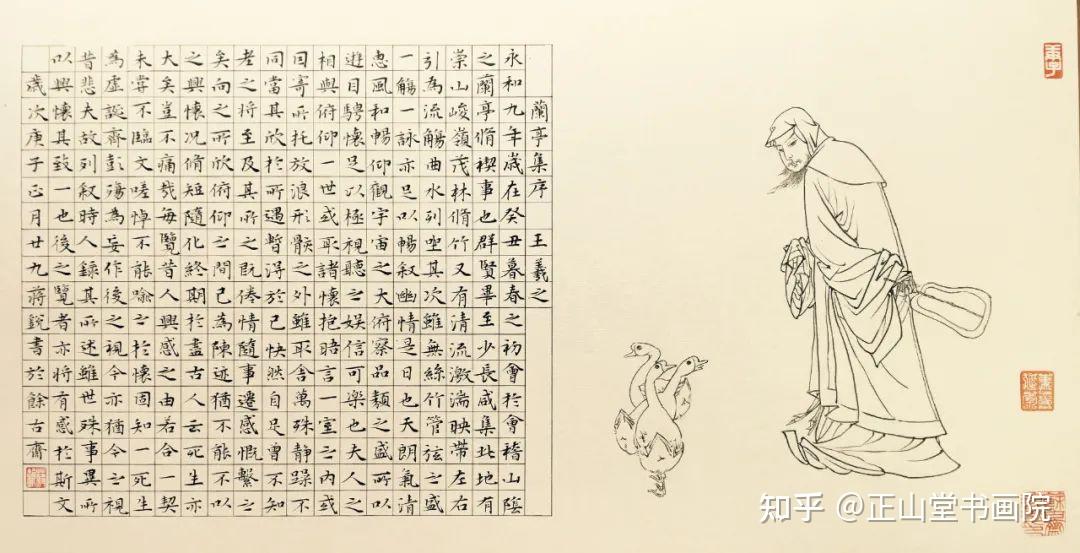 蘭亭集序 王羲之
永和九年歲在癸丑暮春之初會於會稽山陰
之蘭亭脩禊事也群賢畢至少長咸集此地有
崇山峻嶺茂林脩竹又有清流激湍映帶左右
引為流觴曲水列坐其次雖無絲竹管弦之盛
一觴一詠亦足以暢叙幽情是日也天朗氣清
惠風和暢仰觀宇宙之大俯察品類之盛所以
遊目騁懷足以極視聽之娛信可樂也夫人之
相與俯仰一世或取諸懷抱晤言一室之內或
因寄所托放浪形骸之外雖取舍萬殊靜躁不
同當其欣於所遇暫得於己快然自足曾不知
老之將至及其所之既倦情隨事遷感慨繫之
矣向之所欣俯仰之間已為陳迹猶不能不以
之興懷況脩短隨化終期於盡古人云死生亦
大矣豈不痛哉每覽昔人興感之由若合一契
未嘗不臨文嗟悼不能喻之於懷固知一死生
為虛誕齊彭殤為妄作後之視今亦猶今之視
昔悲夫故列叙時人錄其所述雖世殊事異所
以興懷其致一也後之覽者亦將有感於斯文
歲次庚子正月廿九蔣銳書於餘古齋
知乎 @正山堂书画院